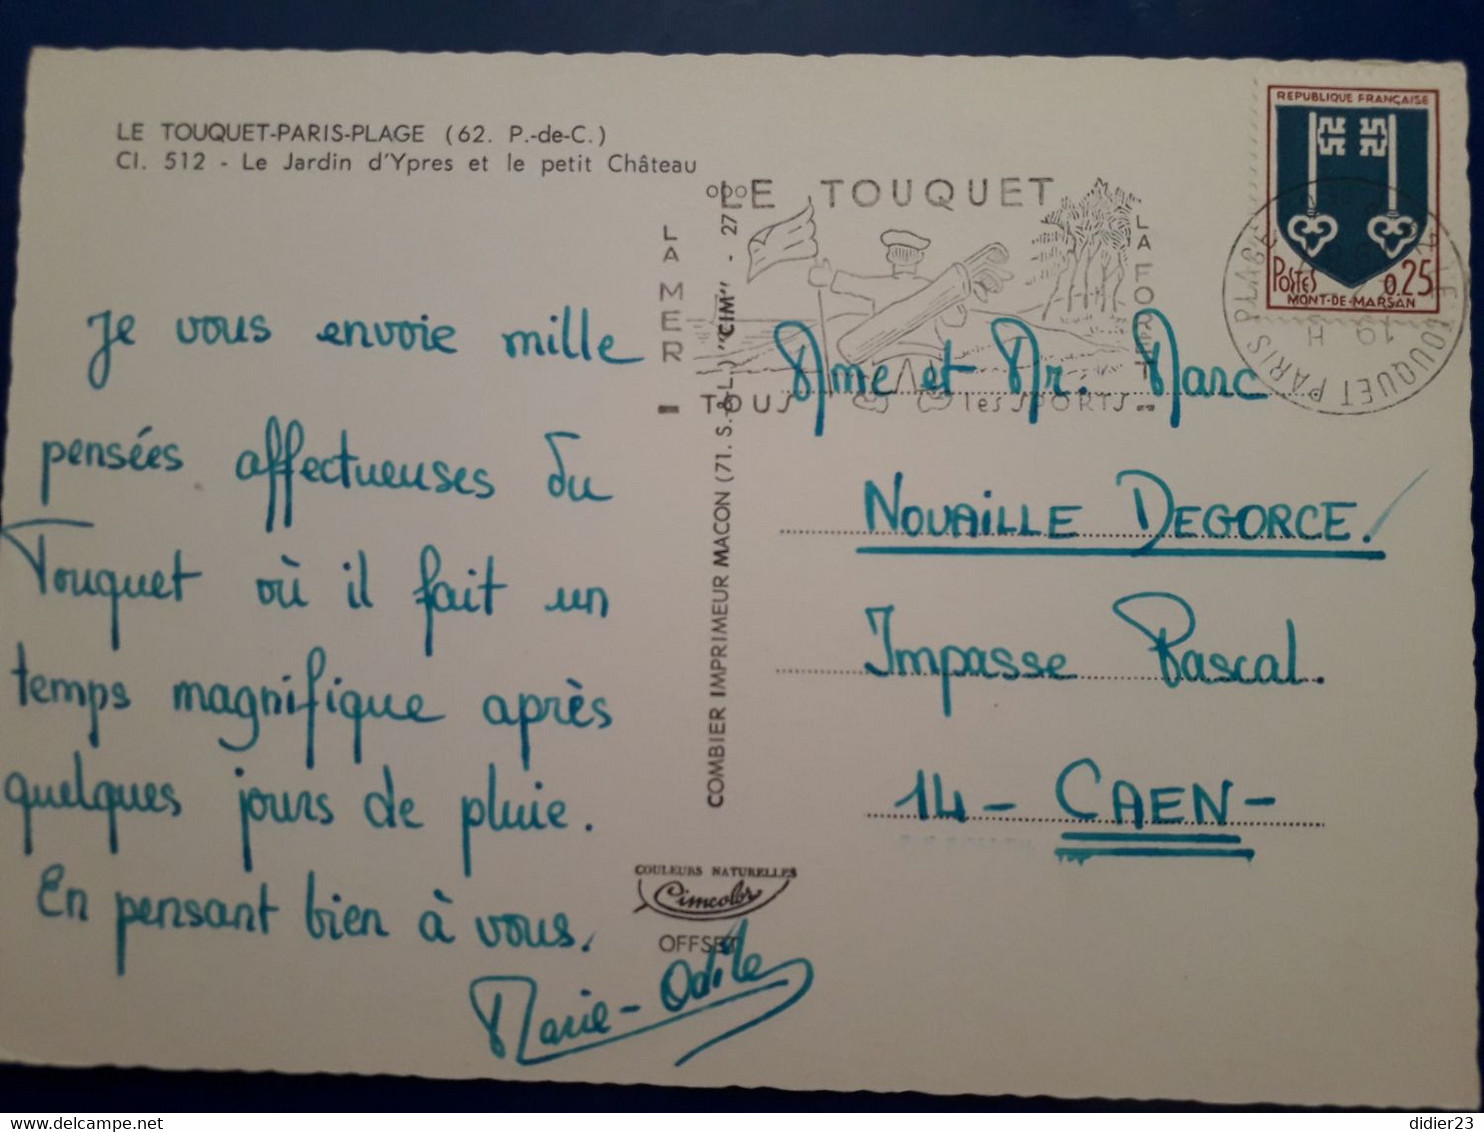 LE TOUQUET-PARIS-PLAGE (62. P.-de-C.)
Cl. 512 - Le Jardin d'Ypres et le petit Château
Je vous envoie mille
pensées affectueuses du
Touquet où il fait un
temps magnifique après
quelques jours de pluie.
En pensant bien à vous.
Marie-Odile
COMBIER IMPRIMEUR MACON (71. S.-&-L.) "CIM" - 27
COULEURS NATURELLES
Cimcolor
OFFSET
LE TOUQUET
LA MER
LA FORET
TOUS les SPORTS
REPUBLIQUE FRANÇAISE
POSTES 0.25
MONT-DE-MARSAN
LE TOUQUET PARIS PLAGE
19 H
Mme et Mr. Marc
NOUAILLE DEGORCE.
Impasse Pascal.
14 - CAEN -
didier23